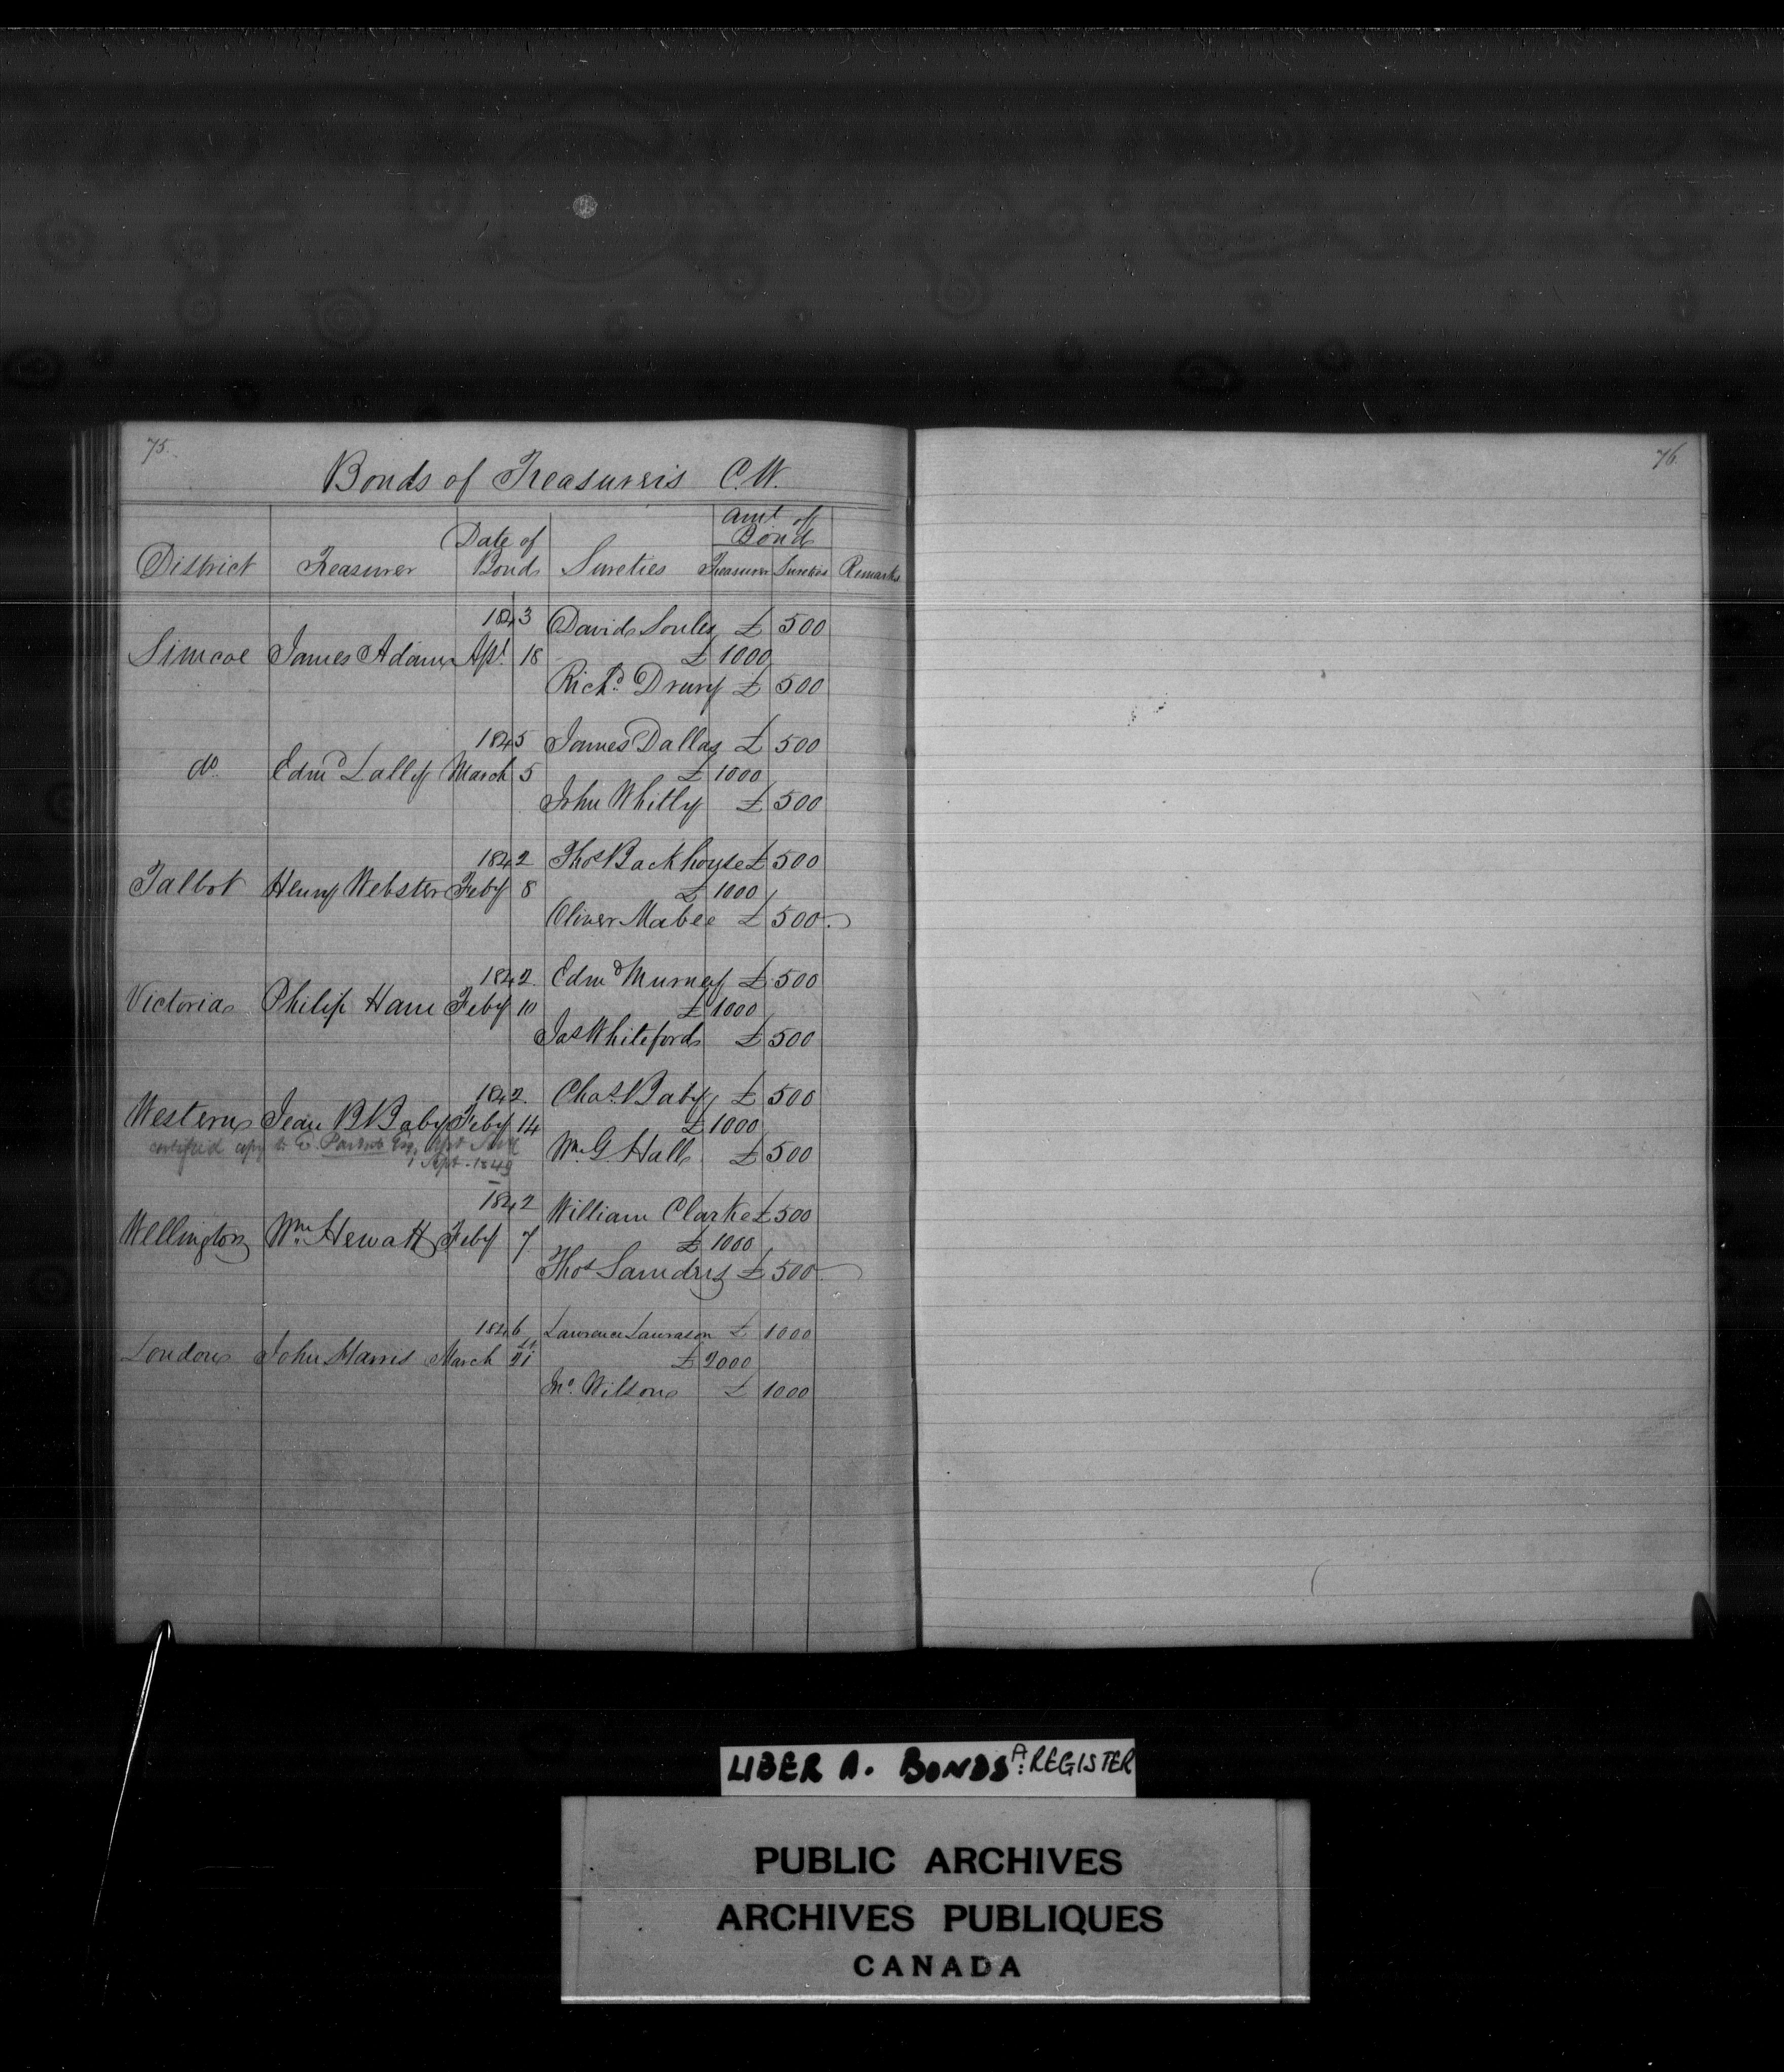 75.
Bonds of Treasurers C.W.
Amt of
Date of Bond
District Treasurer Bond Sureties Treasurer Sureties Remarks
1843 David Soules £ 500
Simcoe James Adam Apl 18 £ 1000
Richd Drury £ 500
1845 James Dallas £ 500
do Edmd Lally March 5 £ 1000
John Whitly £ 500
1842 Thos Backhouse £ 500
Talbot Henry Webster Feby 8 £ 1000
Oliver Mabee £ 500
1842 Edmd Murney £ 500
Victoria Philip Ham Feby 10 £ 1000
Jas Whiteford £ 500
1842 Chas Baby £ 500
Western Jean B Baby Feby 14 £ 1000
certified copy to E. Parent Esq.
1 Sept. 1849
Wm G. Hall £ 500
1842 William Clarke £ 500
Wellington Wm Hewatt Feby 7 £ 1000
Thos Saunders £ 500
1846 Lawrence Lawrason £ 1000
London John Harris March 21 £ 2000
Jno. Wilson £ 1000
76.
LIBER A. BONDS A: REGISTER
PUBLIC ARCHIVES
ARCHIVES PUBLIQUES
CANADA